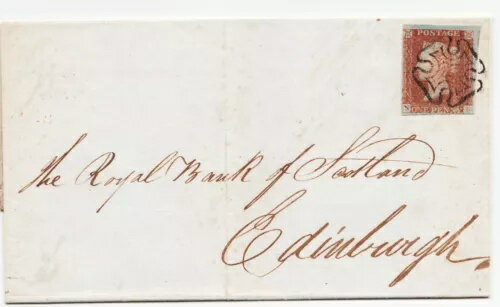 POSTAGE
ONE PENNY
the Royal Bank of Scotland
Edinburgh